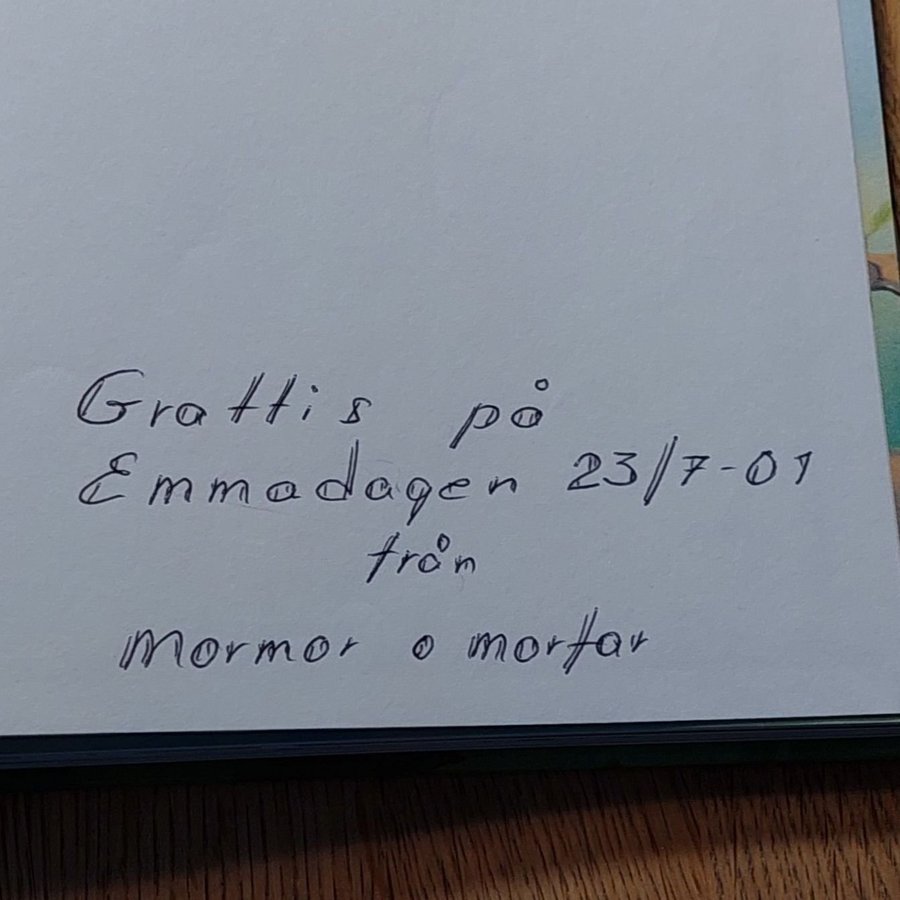 Grattis på
Emmadagen 23/7-01
från
Mormor o morfar